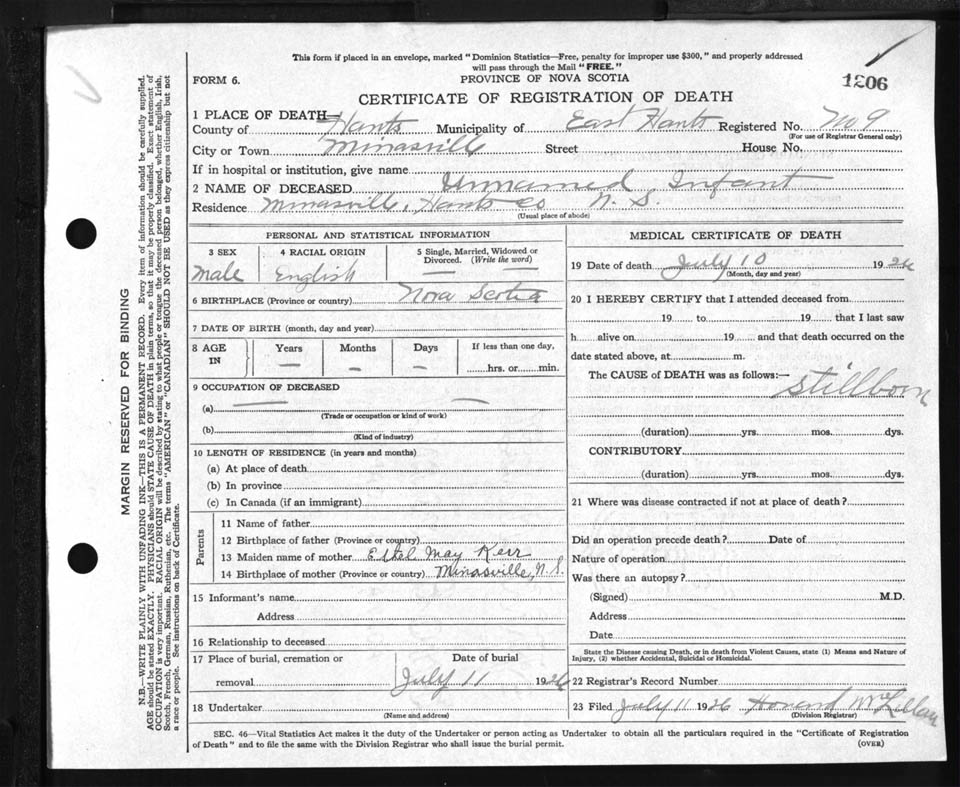 This form if placed in an envelope, marked "Dominion Statistics—Free, penalty for improper use $300," and properly addressed
will pass through the Mail "FREE."
FORM 6.
PROVINCE OF NOVA SCOTIA
1206
CERTIFICATE OF REGISTRATION OF DEATH
1 PLACE OF DEATH—
County of Hants Municipality of East Hants Registered No. No 9
(For use of Registrar General only)
City or Town Minasville Street House No.
If in hospital or institution, give name
2 NAME OF DECEASED Unnamed Infant
Residence Minasville, Hants Co N. S.
(Usual place of abode)
PERSONAL AND STATISTICAL INFORMATION
3 SEX 4 RACIAL ORIGIN 5 Single, Married, Widowed or
Divorced. (Write the word)
Male English — —
6 BIRTHPLACE (Province or country) Nova Scotia
7 DATE OF BIRTH (month, day and year)
8 AGE IN Years Months Days If less than one day,
— — — hrs. or min.
9 OCCUPATION OF DECEASED
(a) — —
(Trade or occupation or kind of work)
(b)
(Kind of industry)
10 LENGTH OF RESIDENCE (in years and months)
(a) At place of death
(b) In province
(c) In Canada (if an immigrant)
Parents
11 Name of father
12 Birthplace of father (Province or country)
13 Maiden name of mother Ethel May Kerr
14 Birthplace of mother (Province or country) Minasville, N. S.
15 Informant's name
Address
16 Relationship to deceased
17 Place of burial, cremation or Date of burial
removal July 11 1926
18 Undertaker
(Name and address)
MEDICAL CERTIFICATE OF DEATH
19 Date of death July 10 1926
(Month, day and year)
20 I HEREBY CERTIFY that I attended deceased from
19 to 19 that I last saw
h alive on 19 and that death occurred on the
date stated above, at m.
The CAUSE of DEATH was as follows:—
Stillborn
(duration) yrs. mos. dys.
CONTRIBUTORY
(duration) yrs. mos. dys.
21 Where was disease contracted if not at place of death?
Did an operation precede death? Date of
Nature of operation
Was there an autopsy?
(Signed) M.D.
Address
Date
State the Disease causing Death, or in death from Violent Causes, state (1) Means and Nature of
Injury, (2) whether Accidental, Suicidal or Homicidal.
22 Registrar's Record Number
23 Filed July 11 1926 Howard McLellan
(Division Registrar)
SEC. 46—Vital Statistics Act makes it the duty of the Undertaker or person acting as Undertaker to obtain all the particulars required in the "Certificate of Registration
of Death" and to file the same with the Division Registrar who shall issue the burial permit.
(OVER)
MARGIN RESERVED FOR BINDING
N.B.—WRITE PLAINLY WITH UNFADING INK—THIS IS A PERMANENT RECORD. Every item of information should be carefully supplied.
AGE should be stated EXACTLY. PHYSICIANS should STATE CAUSE OF DEATH in plain terms, so that it may be properly classified. Exact statement of
OCCUPATION is very important. RACIAL ORIGIN will be described by stating to what people or tongue the deceased person belonged, whether English, Irish,
Scotch, French, German, Russian, Ruthenian, etc. The terms "AMERICAN" or "CANADIAN" SHOULD NOT BE USED as they express citizenship but not
a race or people. See instructions on back of Certificate.